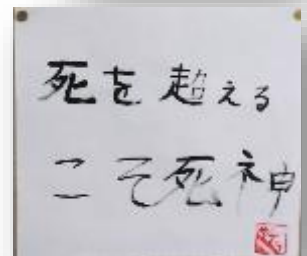 死を超える
こそ死神